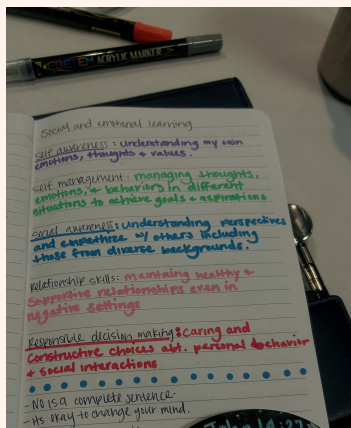 ACRYLIC MARKER
Social and emotional learning
Self awareness: understanding my own
emotions, thoughts & values.
Self management: managing thoughts,
emotions, & behaviors in different
situations to achieve goals & aspirations
Social awareness: understanding perspectives
and empathize w/ others including
those from diverse backgrounds.
Relationship skills: maintaing healthy &
supportive relationships even in
negative settings
Responsible decision making: Caring and
constructive choices abt. personal behavior
& social interactions
- No is a complete sentence.
- Its okay to change your mind.
John 14:27